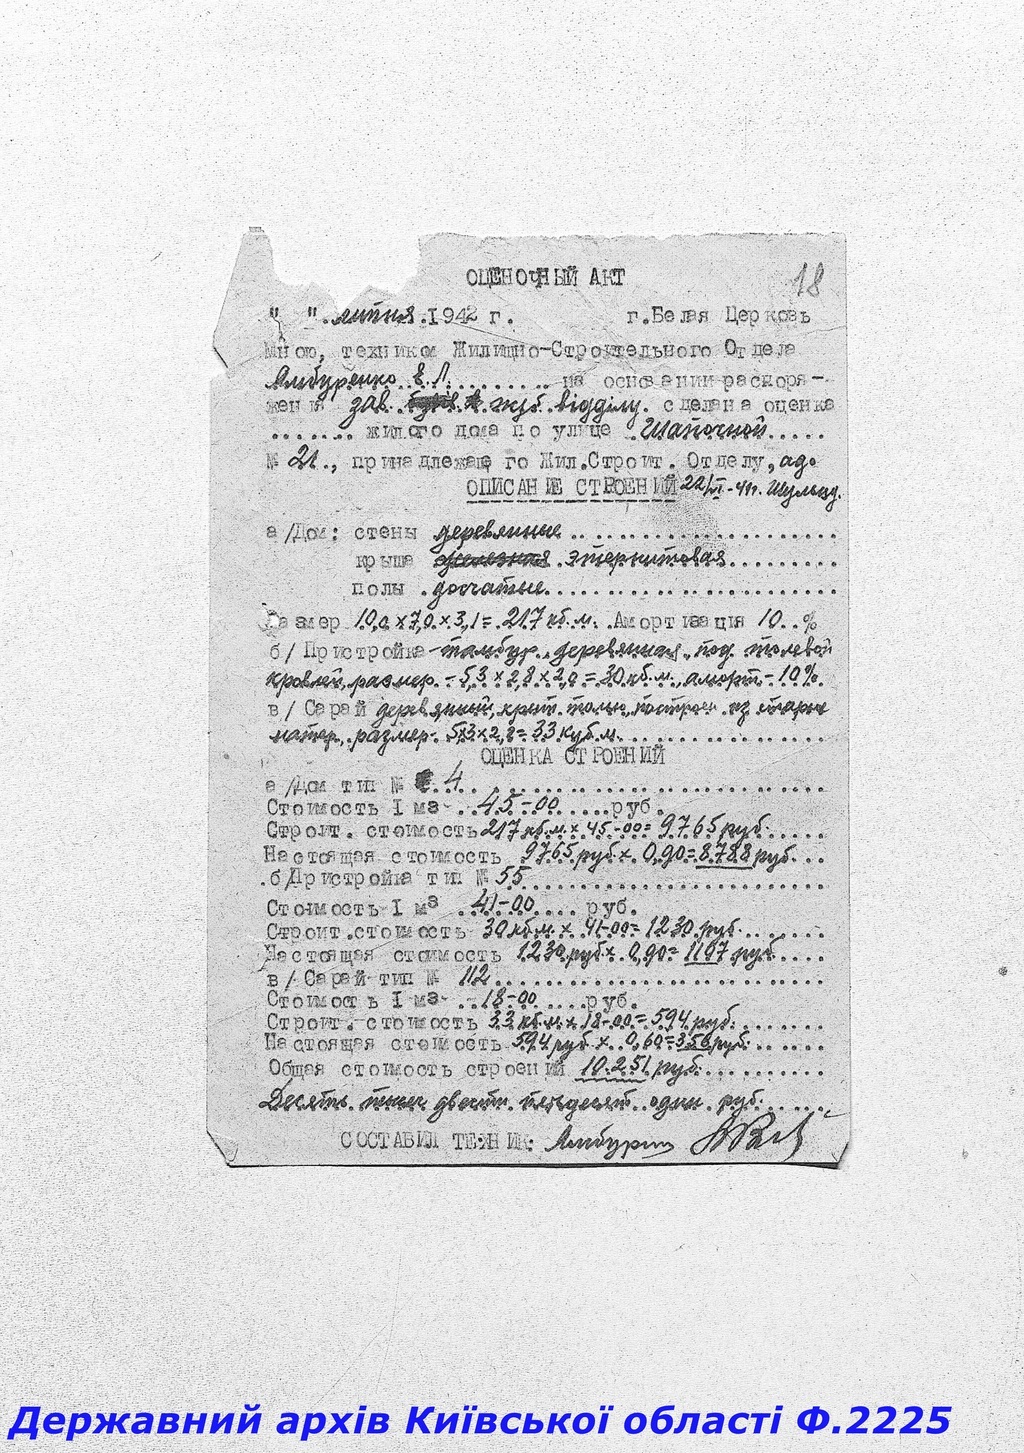 18
ОЦЕНОЧНЫЙ АКТ
" ". липня. 1942 г. г. Белая Церковь
Мною, техником Жилищно-Строительного Отдела
Ямбуренко Е. Л. ........ на основании распоря-
жения зав. жуб. відділу. сделана оценка
....... жилого дома по улице Шапочной.....
№ 21., принадлежаще го Жил.Строит. Отделу,
ОПИСАНИЕ СТРОЕНИЙ 22/VI-41г.
а/Дом: стены деревянные......................
крыша железная этернитовая.........
полы досчатые.......................
Размер 10,0 x 7,0 x 3,1 = 217 кб.м. Амортизация 10..%
б/ Пристройка - тамбур деревянная, под толевой
кровлей, размер - 5,3 x 2,8 x 2,0 = 30 кб.м., аморт - 10%.
в/ Сарай деревянный, крыт. толью, построен из стары
матер., размер. 5x3x2,2 = 33 куб.м.
ОЦЕНКА СТРОЕНИЙ
а/Дом тип № 4......................
Стоимость I м3 - ..45-00.....руб.
Строит. стоимость 217 кб.м. x 45-00 = 9765 руб.
Настоящая стоимость 9765 руб. x 0,90 = 8.788 руб....
б/Пристройка тип № 55.........................
Стоимость I м3 ..41-00.... руб.
Строит.стоимость 30 кб.м. x 41-00 = 1230 руб.
Настоящая стоимость 1230 руб x 0,90 = 1107 руб.
в/ Сарай тип № 112........................
Стоимость I м3- ..18-00.....руб.
Строит. стоимость 33 кб.м. x 18-00 = 594 руб.
Настоящая стоимость 594 руб x 0,60 = 356 руб.
Общая стоимость строений 10.251 руб.
Десять тысяч двести пятьдесят один руб.
СОСТАВИЛ ТЕХНИК:
Державний архів Київської області Ф.2225